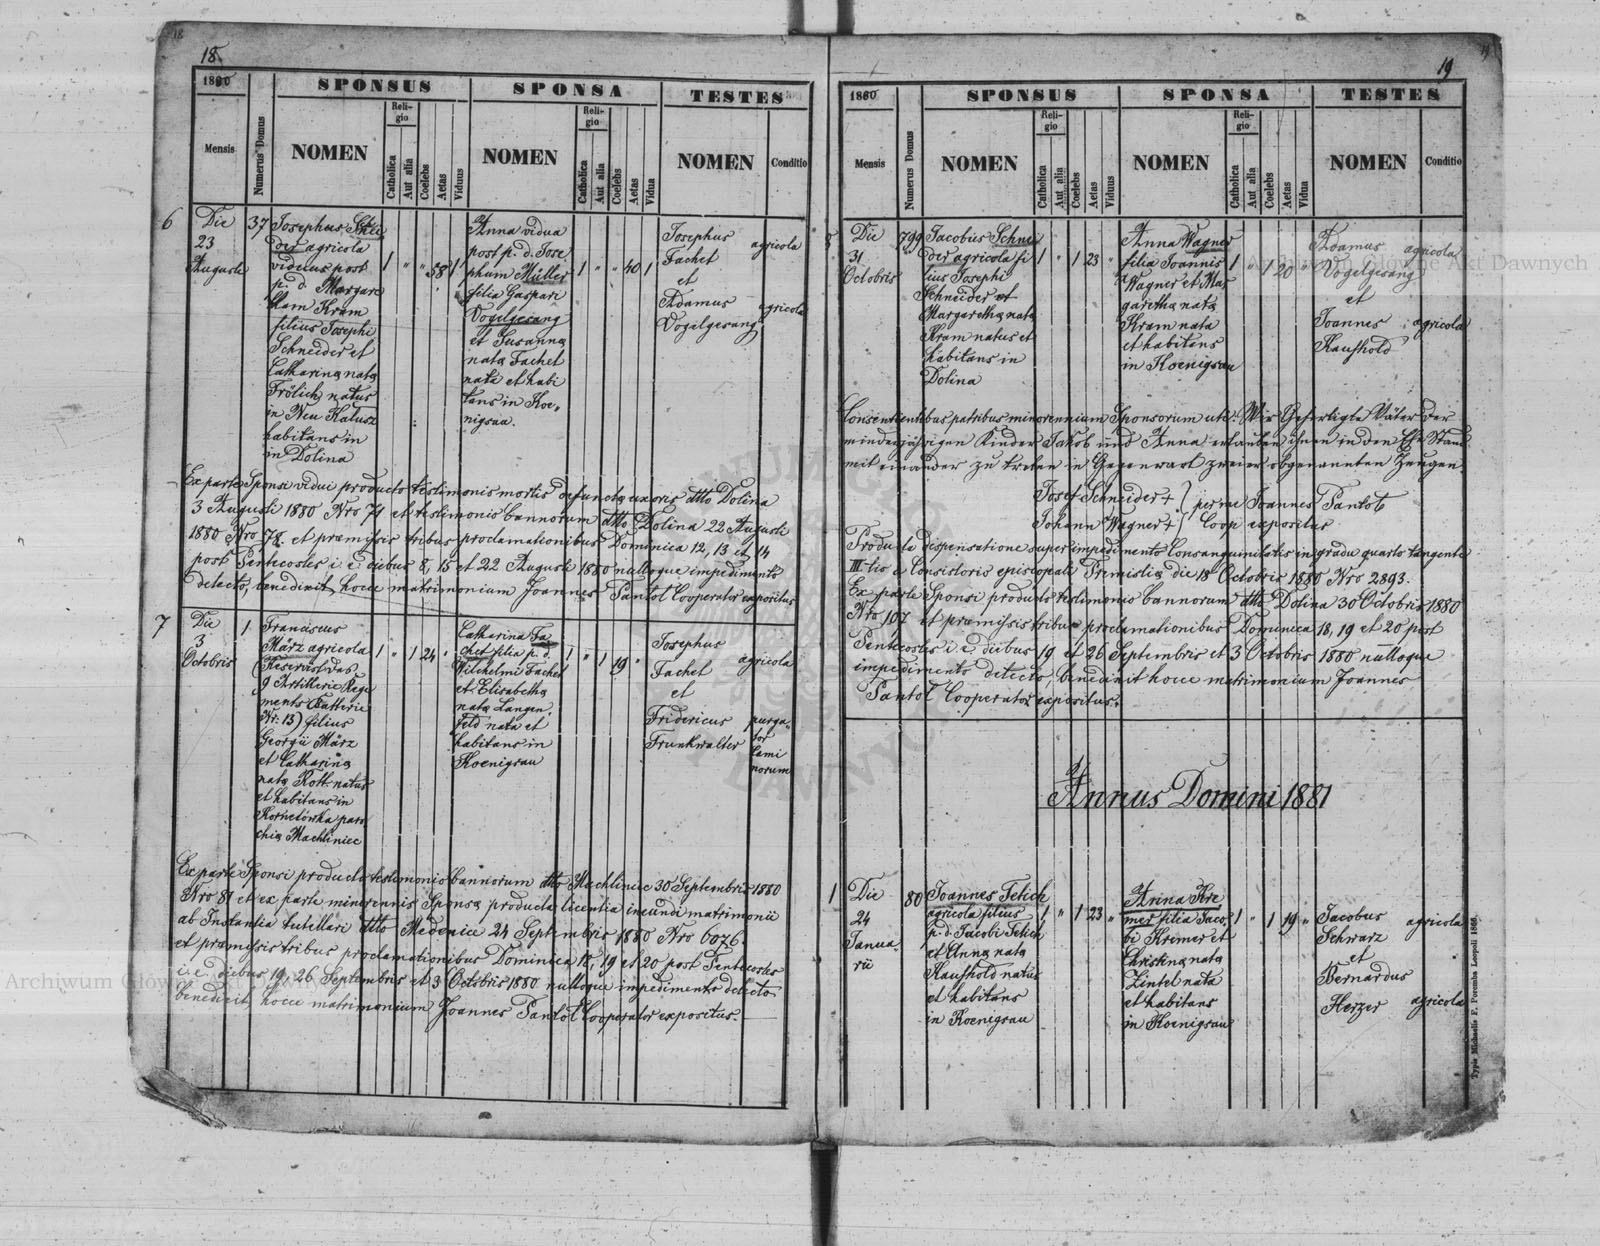 18
1880
SPONSUS
SPONSA
TESTES
Mensis
Numerus Domus
NOMEN
Religio
Catholica
Aut alia
Coelebs
Aetas
Viduus
NOMEN
Religio
Catholica
Aut alia
Coelebs
Aetas
Vidua
NOMEN
Conditio
6
Die
23
Augusti
37
Josephus Schnei
der agricola
viduus post
p. d. Margare
tham Kram
filius Josephi
Schneider et
Catharinæ natæ
Frölich natus
in Neu Kalusz
habitans in
in Dolina
1 " " 58 1
Anna vidua
post p. d. Jose
phum Müller
filia Gaspari
Vogelgesang
et Susannæ
natæ Fachet
nata et habi
tans in Koe-
nigsau.
1 " " 40 1
Josephus
Fachet
et
Adamus
Vogilgesang
agricola
agricola
Ex parte Sponsi vidui producto testimonio mortis defunctæ uxoris dtto Dolina
3 Augusti 1880 Nro 71 et testimonio bannorum dtto Dolina 22 Augusti
1880 Nro 78. et præmissis tribus proclamationibus Dominica 12, 13 et 14
post Pentecostes i. e. diebus 8, 15 et 22 Augusti 1880 nulloque impedimento
detecto, benedixit hocce matrimonium Joannes Pantoł Cooperator expositus
7
Die
3
Octobris
1
Franciscus
März agricola
(Reservist das
9 Artillerie Rege
ments Batterie
Nr: 13) filius
Georgii März
et Catharinæ
natæ Rott natus
et habitans in
Kornelówka paro
chiæ Machliniec
1 " 1 24 "
Catharina Fa
chet filia p. d.
Wilhelmi Fachet
et Elisabethæ
natæ Langen-
feld nata et
habitans in
Koenigsau
1 " 1 19 "
Josephus
Fachet
et
Fridericus
Trunkwalter
agricola
purga-
tor
cami
norum
Ex parte Sponsi producto testimonio bannorum dtto Machliniec 30 Septembris 1880
Nro 81 et ex parte minorennis Sponsæ producta licentia ineundi matrimonii
ab Instantia tutellari dtto Medenice 24 Septembris 1880 Nro 6076.
et præmissis tribus proclamationibus Dominica 18, 19 et 20 post Pentecostes
i. e. diebus 19, 26 Septembris et 3 Octobris 1880 nulloque impedimento detecto
benedixit hocce matrimonium Joannes Pantoł Cooperator expositus.
19
1880
SPONSUS
SPONSA
TESTES
Mensis
Numerus Domus
NOMEN
Religio
Catholica
Aut alia
Coelebs
Aetas
Viduus
NOMEN
Religio
Catholica
Aut alia
Coelebs
Aetas
Vidua
NOMEN
Conditio
8
Die
31
Octobris
799
Jacobus Schnei
der agricola fi
lius Josephi
Schneider et
Margarethæ natæ
Kram natus et
habitans in
Dolina
1 " 1 23 "
Anna Wagner
filia Joannis
Wagner et Mar
garethæ natæ
Kram nata
et habitans
in Koenigsau
1 " 1 20 "
Adamus
Vogelgesang
et
Joannes
Kaufhold
agricola
agricola
Consentientibus patribus minorennium Sponsorum uti: Wir Gefertigte Väter der
minderjährigen Kinder Jakob und Anna erlauben ihnen in den Ehe Stand
mit einander zu treten in Gegenwart zweier obgenannten Zeugen
Josef Schneider + } per me Joannes Pantoł
Johann Wagner + } Coop expositus
Producta dispensatione super impedimento Consanguinitatis in gradu quarto tangente
III-tio a Consistorio episcopali Premisliæ die 18 Octobris 1880 Nro 2893.
Ex parte Sponsi producto testimonio bannorum dtto Dolina 30 Octobris 1880
Nro 107 et præmissis tribus proclamationibus Dominica 18, 19 et 20 post
Pentecostes i. e. diebus 19 et 26 Septembris et 3 Octobris 1880 nulloque
impedimento detecto, benedixit hocce matrimonium Joannes
Pantoł Cooperator expositus.
Annus Domini 1881
1
Die
24
Janua-
rii
80
Joannes Fetich
agricola filius
p. d. Jacobi Fetich
et Annæ natæ
Kaufhold natus
et habitans
in Koenigsau
1 " 1 23 "
Anna Kre
mer filia Jaco
bi Kremer et
Christinæ natæ
Zintel nata
et habitans
in Koenigsau
1 " 1 19 "
Jacobus
Schwarz
et
Bernardus
Herzer
agricola
agricola
Typis Michaelis F. Poremba Leopoli 1866.
Archiwum Główne Akt Dawnych
Archiwum Główne Akt Dawnych